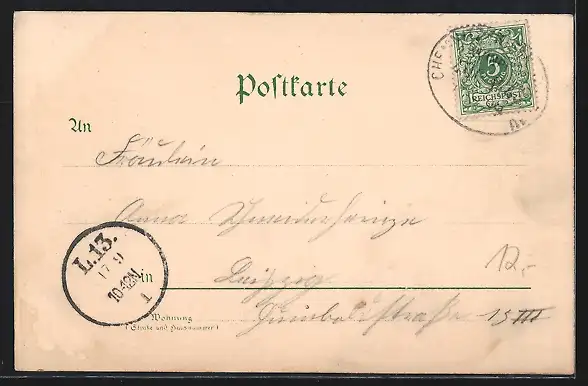 CHE
5
REICHSPOST
Postkarte
An
Fräulein
Anna
L.13.
17 9
10-12N
1
in Leipzig
12,-
Wohnung
(Straße und Hausnummer)
Humboldtstraße 15 III